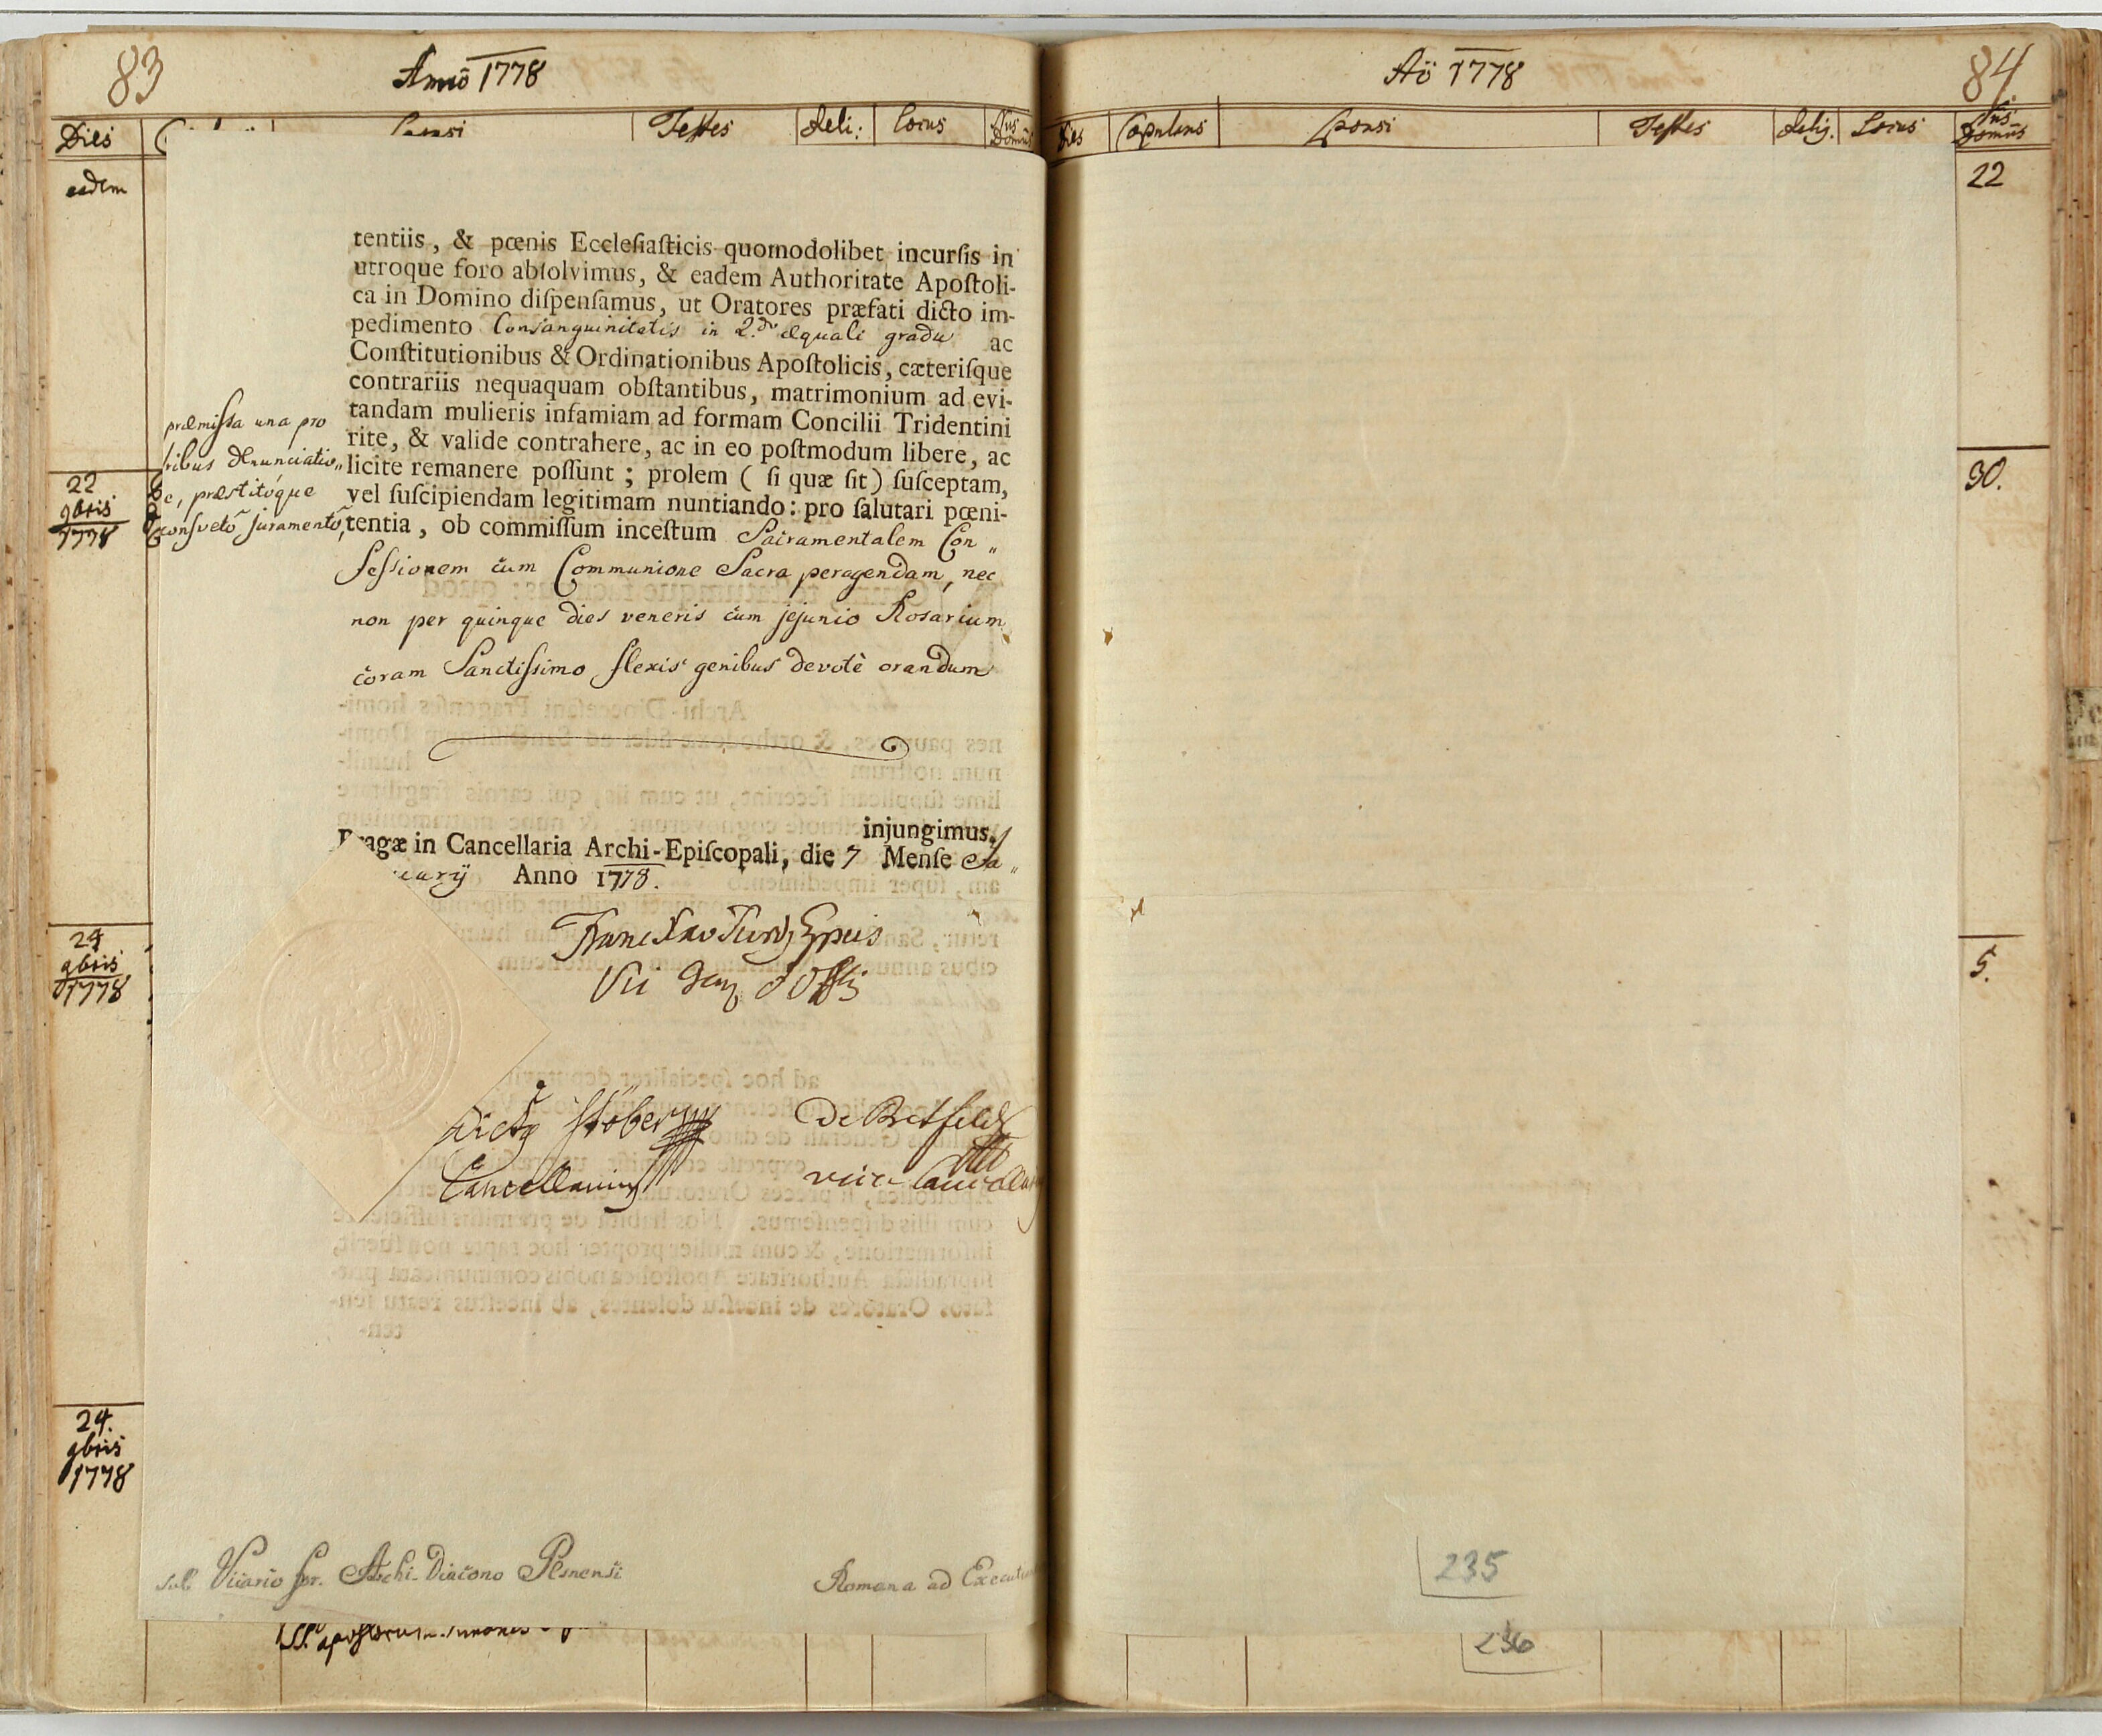 83
Anno 1778
Dies Testes Reli: Locus Nus Domus
eadem
tentiis, & pœnis Eccleſiaſticis quomodolibet incurſis in
utroque foro abſolvimus, & eadem Authoritate Apoſtoli-
ca in Domino diſpenſamus, ut Oratores præfati dicto im-
pedimento Consanguinitatis in 2.do æquali gradu ac
Conſtitutionibus & Ordinationibus Apoſtolicis, cæteriſque
contrariis nequaquam obſtantibus, matrimonium ad evi-
tandam mulieris infamiam ad formam Concilii Tridentini
rite, & valide contrahere, ac in eo poſtmodum libere, ac
licite remanere poſſunt; prolem ( ſi quæ ſit ) ſuſceptam,
vel ſuſcipiendam legitimam nuntiando: pro ſalutari pœni-
tentia, ob commiſſum inceſtum Sacramentalem Con„
feſsionem cum Communione Sacra peragendam, nec
non per quinque dies veneris cum jejunio Rosarium
coram Sanctiſsimo flexis genibus devotè orandum
præmiſsa una pro
tribus denunciatio„
ne, præstitóque
consvetô juramentô,
22
9bris
1778
injungimus.
Pragæ in Cancellaria Archi-Epiſcopali, die 7 Menſe Ja„
nuarij Anno 1778.
24
9bris
1778
Vic Gen
Stöber
Cancellarius
De Bretfeld
vice Cancellar
24.
9bris
1778
Vicario for. Archi-Diacono Plsnensi
Romana ad Executi
SS. apostolorum Simonis
Aõ 1778
84
Dies Copulans Sponsi Testes Relig. Locus Nus Domus
22
30.
5.
235
236